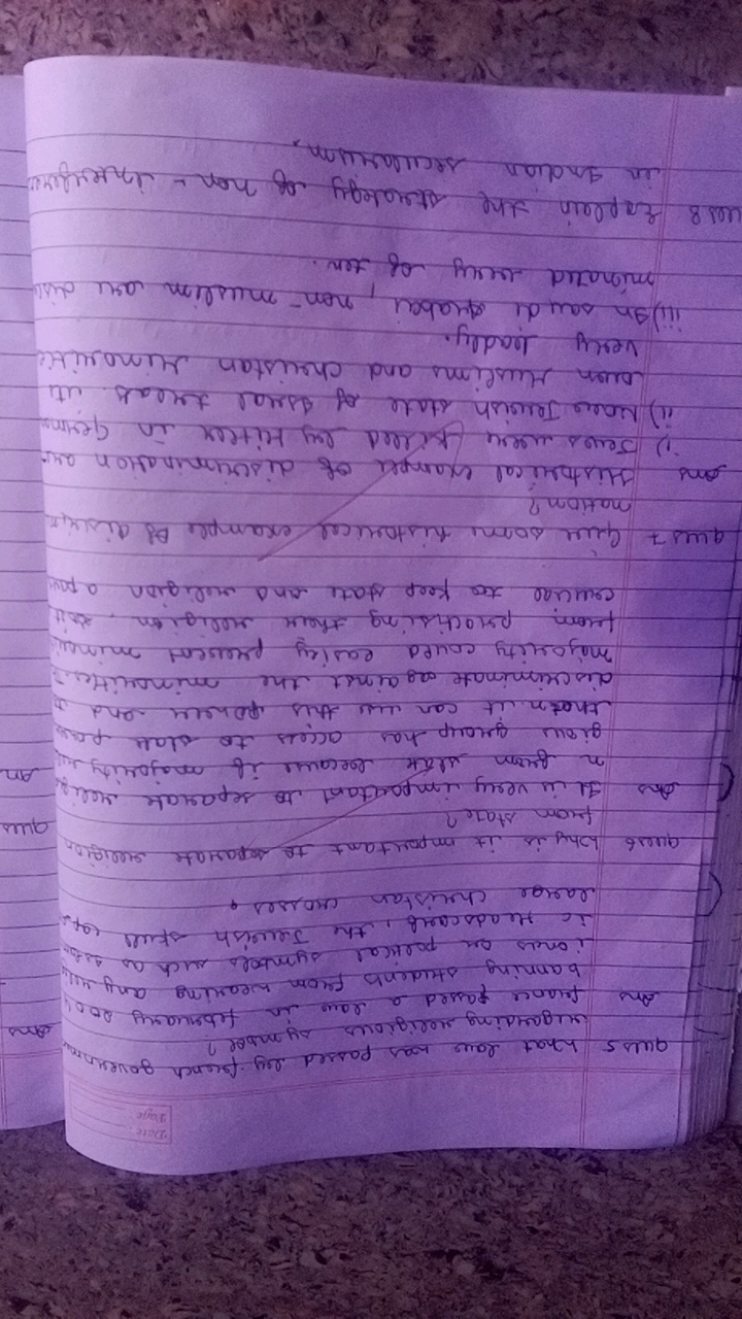 Date
Page
ques 5 What law was passed by french
regarding religious symbol?
Ans france passed a law in february 2004
banning students from wearing any
ious or political symbols such as
ic Headscarf, the Jewish skull
large christan crosses.
ques 6 Why is it important to separate religion
from state?
Ans It is very important to separate
n from state because if majority
gious group has access to state
then it can use this power and
discriminate against the minorities.
majority could easley prevent
from practising their religion.
crucial to keep state and religion
ques 7 Give some historical example of
nation?
Ans Historical example of discrimination are
i) Jews were killed by Hitler in
ii) Now Jewish state of Isreal treats its
own Muslims and christan Minorities
very badly.
iii) In saudi Arabai, non-muslim are
minated very of ten.
ques 8 Explain the strategy of non-
in Indian secularism.
ques
Ans